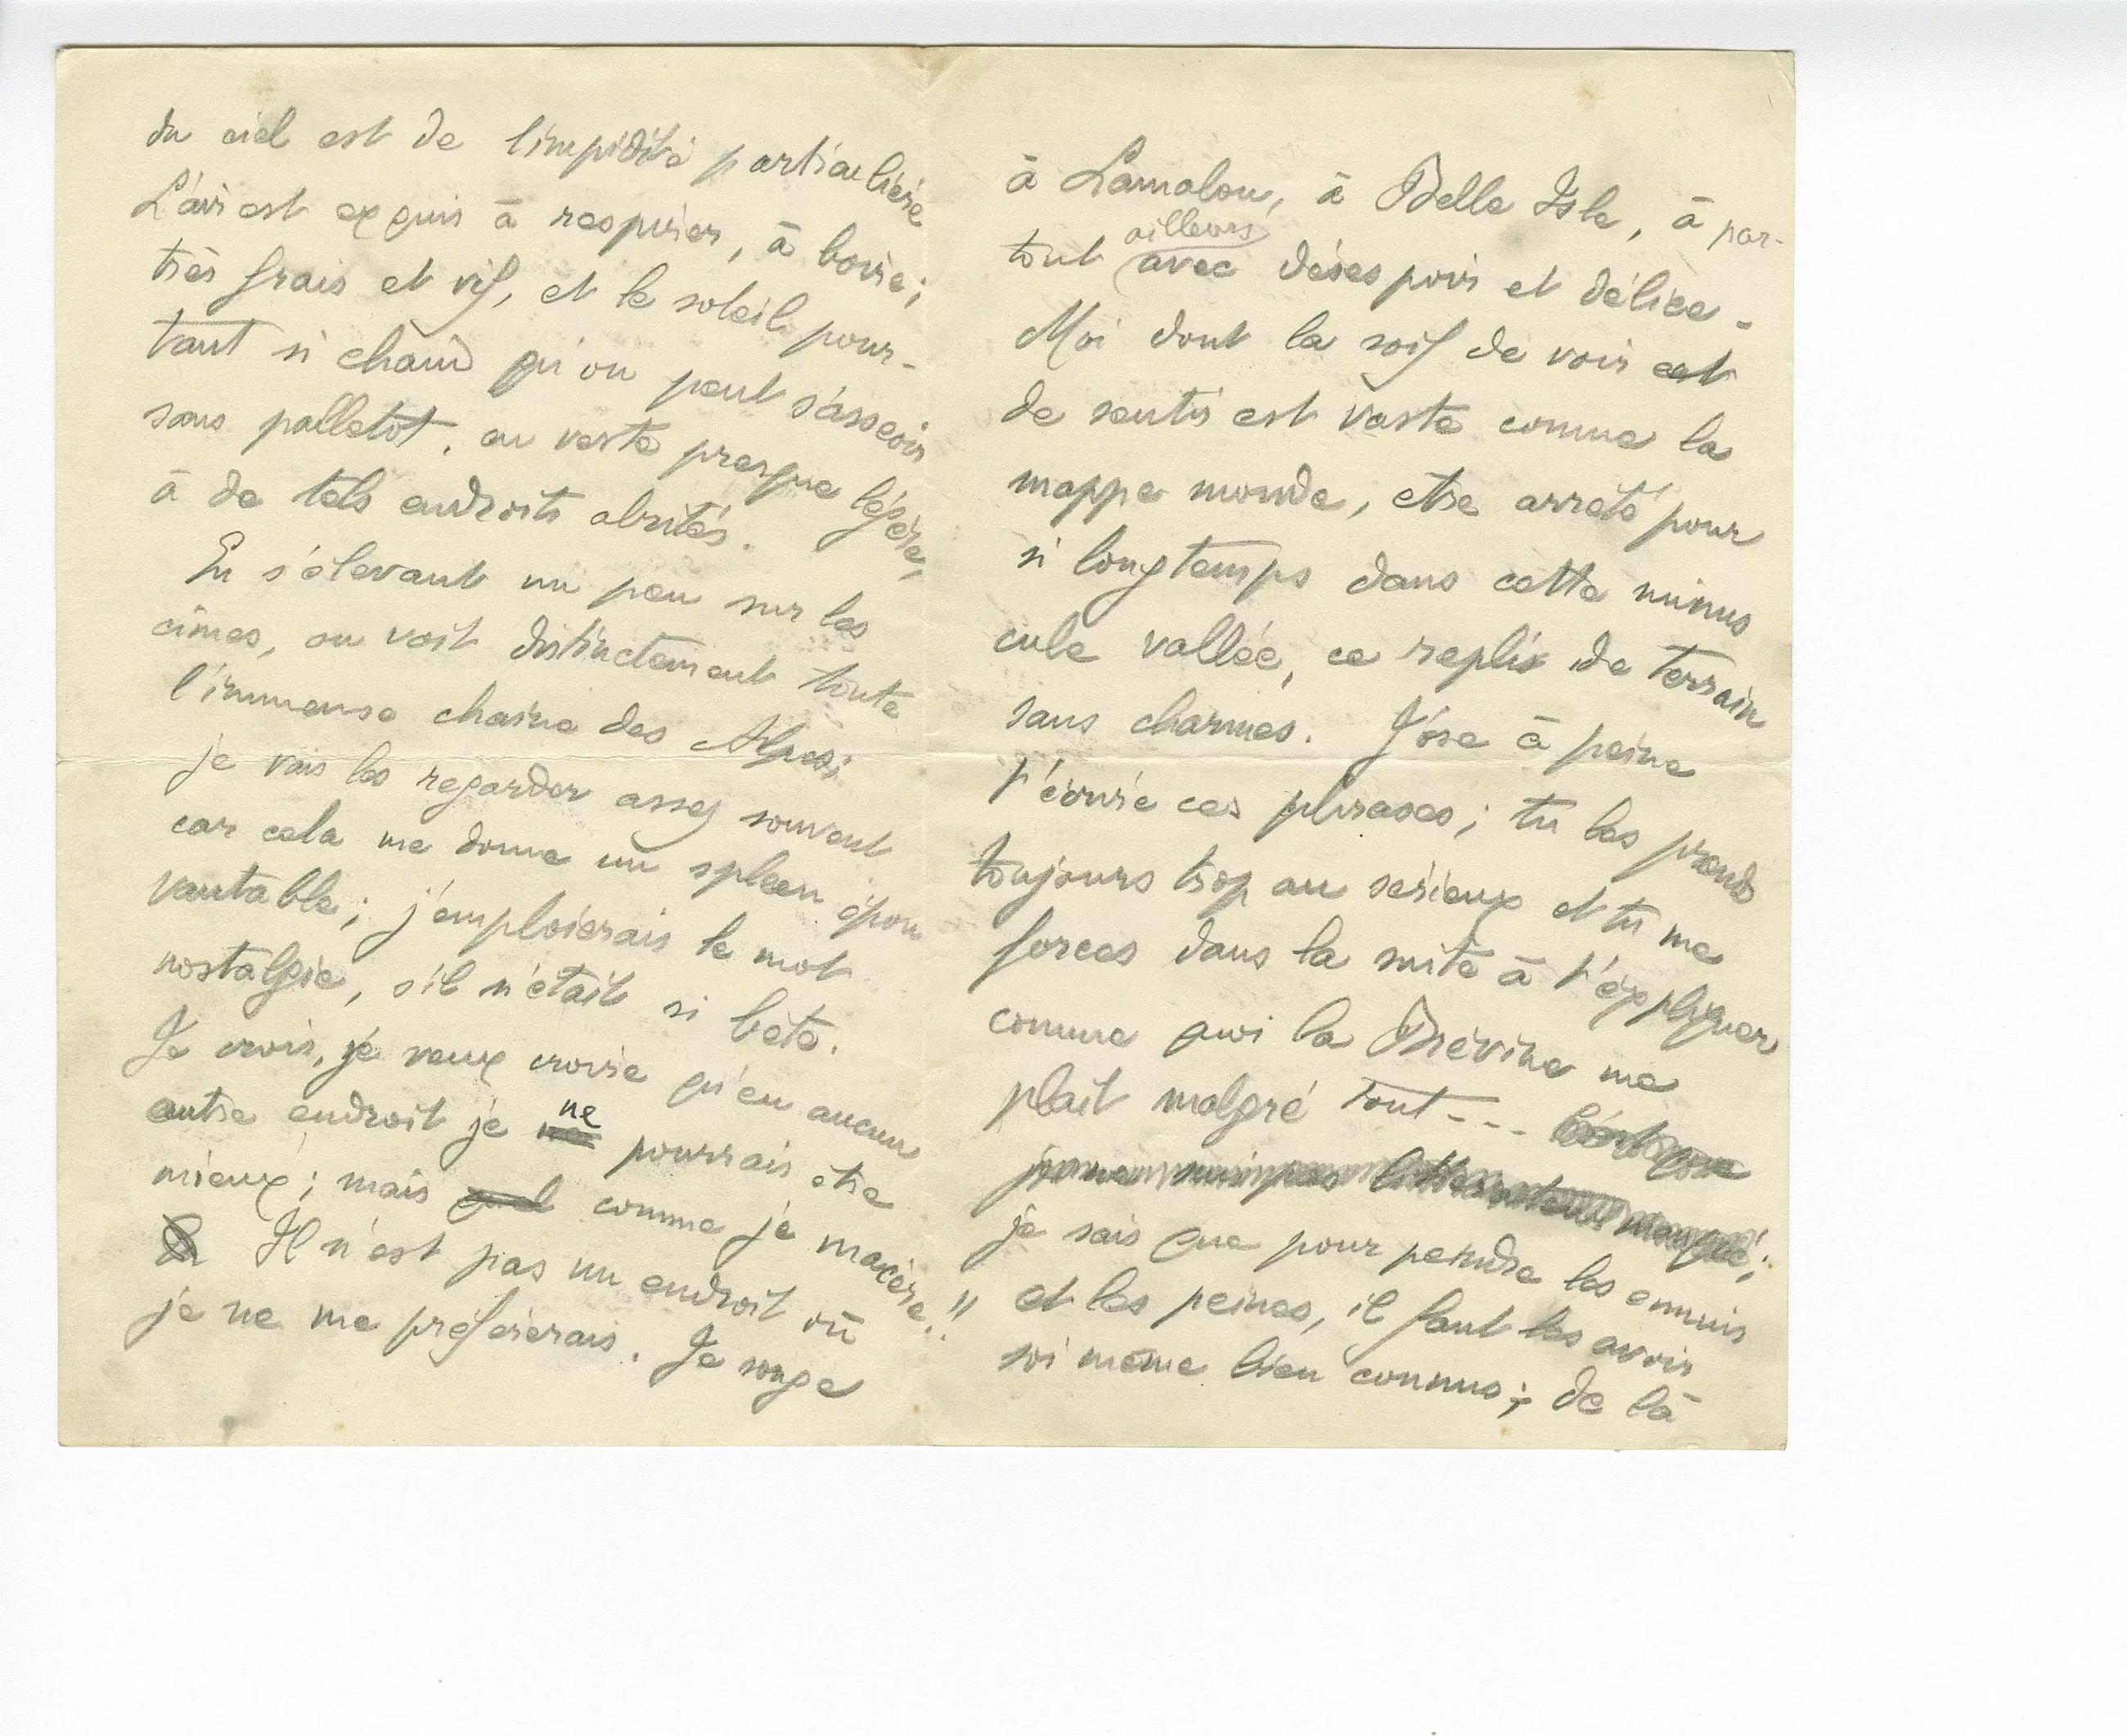 du ciel est de limpidité particulière
L'air est exquis à respirer, à boire ;
très frais et vif, et le soleil pour-
tant si chaud qu'on peut s'asseoir
sans palletot, en veste presque légère,
à de tels endroits abrités.
En s'élevant un peu sur les
cimes, on voit distinctement toute
l'immense chaine des Alpes ;
je vais les regarder assez souvent
car cela me donne un spleen épou
vantable ; j'emploierais le mot
nostalgie, s'il n'était si bête.
Je crois, je veux croire qu'en aucun
autre endroit je ne pourrais etre
mieux ; mais comme je macère !!
Il n'est pas un endroit où
je ne me préfèrerais. Je songe
à Lamalou, à Belle Isle, à par-
tout ailleurs avec désespoir et délice -
Moi dont la soif de voir et
de sentir est vaste comme la
mappe monde, etre arrêté pour
si longtemps dans cette minus
cule vallée, ce repli de terrain
sans charmes. J'ose à peine
t'écrire ces phrases ; tu les prends
toujours trop au serieux et tu me
forces dans la suite à t'expliquer
comme quoi la Brévine me
plait malgré tout - - -
je sais que pour peindre les ennuis
et les peines, il faut les avoir
soi même bien connus ; de là